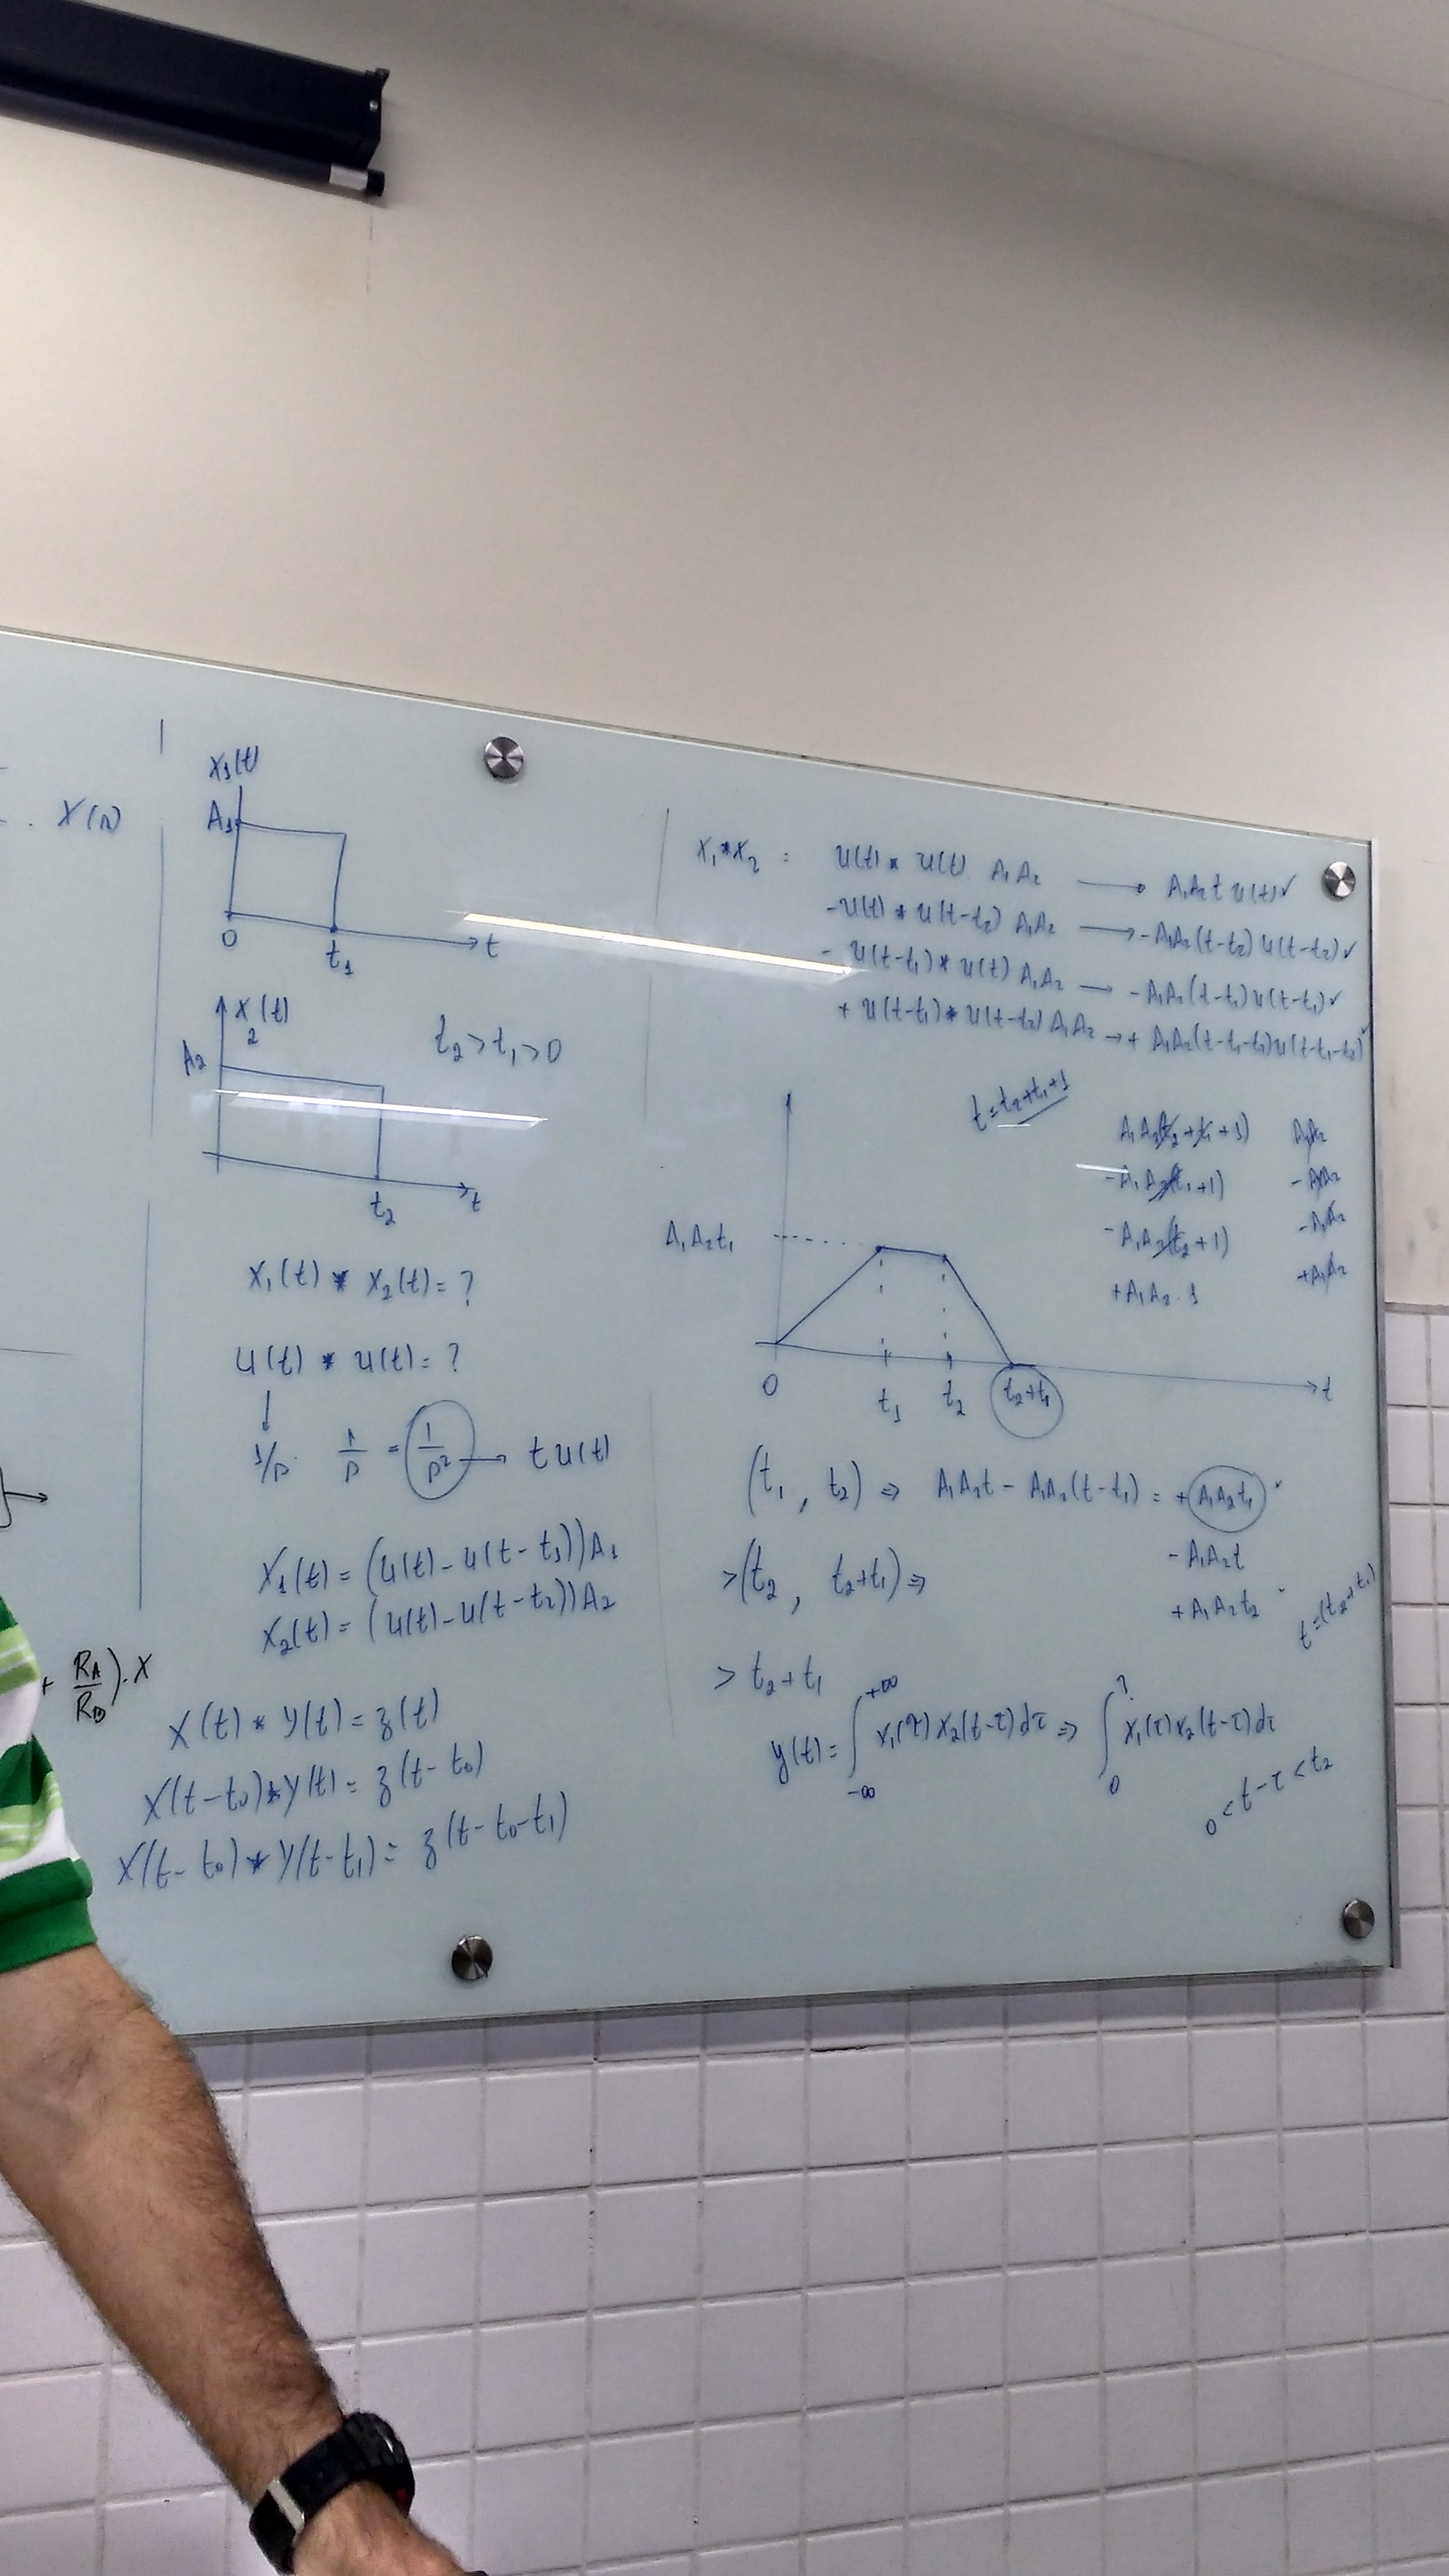 X(s)
x₁(t)
A₁
0
t₁
t
x₂(t)
A₂
t₂ > t₁ > 0
t₂
t
x₁(t) * x₂(t) = ?
u(t) * u(t) = ?
1/s · 1/s = 1/s² → t u(t)
x₁(t) = (u(t) - u(t-t₁))A₁
x₂(t) = (u(t) - u(t-t₂))A₂
+ R_A/R_B) . X
x(t) * y(t) = z(t)
x(t-t₀) * y(t) = z(t-t₀)
x(t-t₀) * y(t-t₁) = z(t-t₀-t₁)
x₁*x₂ : u(t) * u(t) A₁A₂ → A₁A₂ t u(t) ✓
-u(t) * u(t-t₂) A₁A₂ → -A₁A₂(t-t₂) u(t-t₂) ✓
- u(t-t₁) * u(t) A₁A₂ → -A₁A₂(t-t₁) u(t-t₁) ✓
+ u(t-t₁) * u(t-t₂) A₁A₂ → + A₁A₂(t-t₁-t₂) u(t-t₁-t₂) ✓
t = t₂+t₁+1
A₁A₂(t₂+t₁+1) A₁A₂
-A₁A₂(t₁+1) -A₁A₂
-A₁A₂(t₂+1) -A₁A₂
+A₁A₂ . 1 +A₁A₂
A₁A₂t₁
0
t₁
t₂
t₂+t₁
t
(t₁, t₂) ⇒ A₁A₂t - A₁A₂(t-t₁) = + A₁A₂t₁ ✓
>(t₂, t₂+t₁) ⇒ - A₁A₂t
+ A₁A₂t₂
t=(t₂+t₁)
> t₂+t₁
y(t) = ∫_{-∞}^{+∞} x₁(τ) x₂(t-τ) dτ ⇒ ∫_0^? x₁(τ) x₂(t-τ) dτ
0 < t-τ < t₂